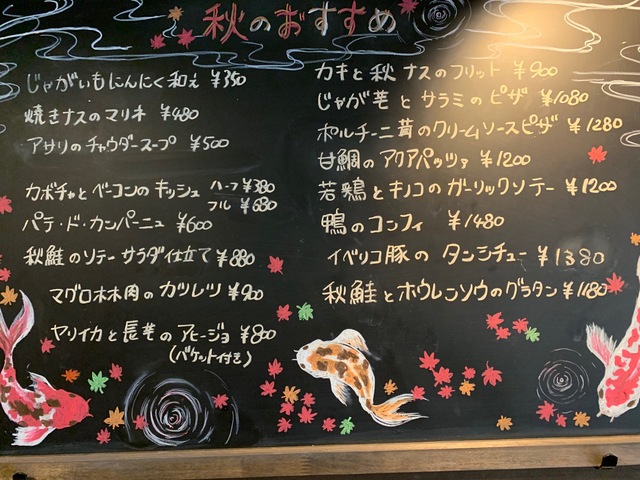 秋のおすすめ
じゃがいもにんにく和え ¥350
焼きナスのマリネ ¥480
アサリのチャウダースープ ¥500
カボチャとベーコンのキッシュ ハーフ ¥380
フル ¥680
パテ・ド・カンパーニュ ¥600
秋鮭のソテー サラダ仕立て ¥880
マグロホホ肉のカツレツ ¥900
ヤリイカと長芋のアヒージョ ¥800
(バゲット付き)
カキと秋ナスのフリット ¥900
じゃが芋とサラミのピザ ¥1080
ポルチーニ茸のクリームソースピザ ¥1280
甘鯛のアクアパッツァ ¥1200
若鶏とキノコのガーリックソテー ¥1200
鴨のコンフィ ¥1480
イベリコ豚のタンシチュー ¥1380
秋鮭とホウレンソウのグラタン ¥1180